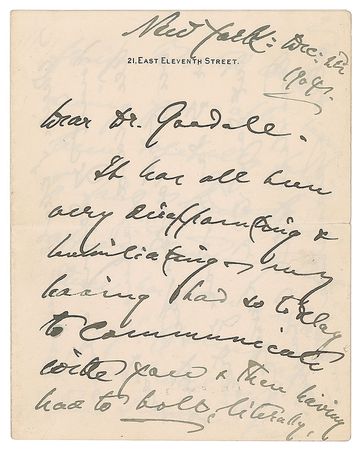 New York: Dec: 2d
1904.
21, EAST ELEVENTH STREET.
Dear Dr. Goodale.
It has all been
very disappointing &
humiliating, my
having had so to delay
to communicate
with you & then having
had to bolt, literally,